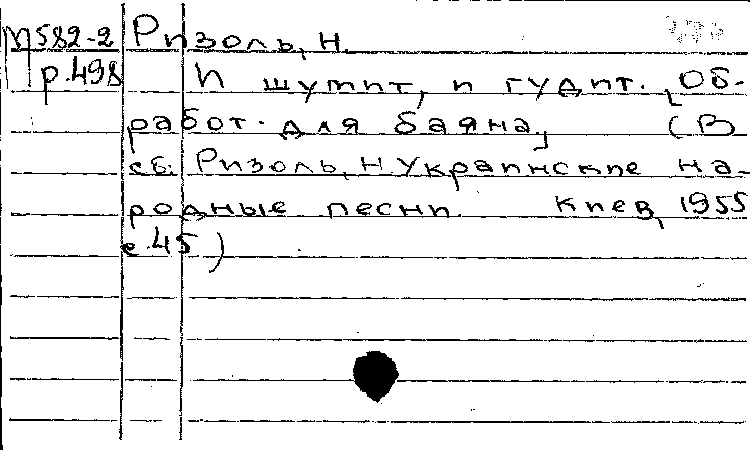 М582-2 Ризоль, Н.
р.498 И шумит, и гудит. [Об-
работ. для баяна] (В
сб: Ризоль, Н Украинские на-
родные песни. Киев, 1955
с.45)